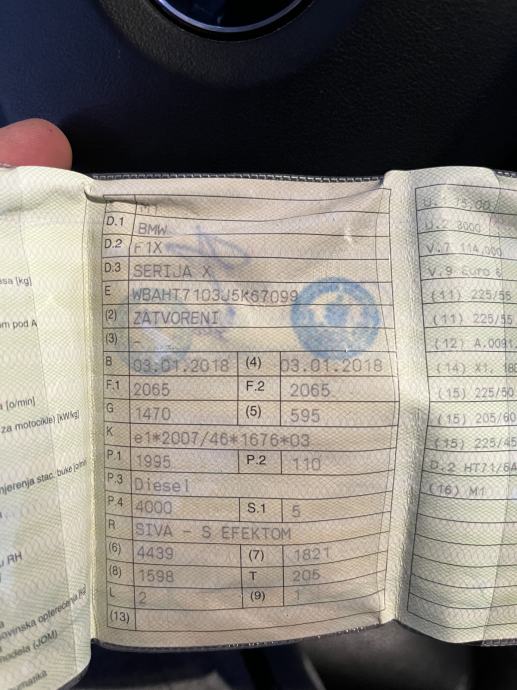 M1
D.1 BMW
D.2 F1X
D.3 SERIJA X
E WBAHT7103J5K67099
(2) ZATVORENI
(3) -
B 03.01.2018 (4) 03.01.2018
F.1 2065 F.2 2065
G 1470 (5) 595
K e1*2007/46*1676*03
P.1 1995 P.2 110
P.3 Diesel
P.4 4000 S.1 5
R SIVA - S EFEKTOM
(6) 4439 (7) 1821
(8) 1598 T 205
L 2 (9) 1
(13)
[kg]
om pod A
[o/min]
za motocikle) [kW/kg]
mjerenja stac. buke
u RH
modela (JOM)
75.00
U.2 3000
V.7 114.000
V.9 Euro 6
(11) 225/55
(11) 225/55
(12) A.0091.
(14) X1, 18d
(15) 225/50
(15) 205/60
(15) 225/45
D.2 HT71/6A
(16) M1